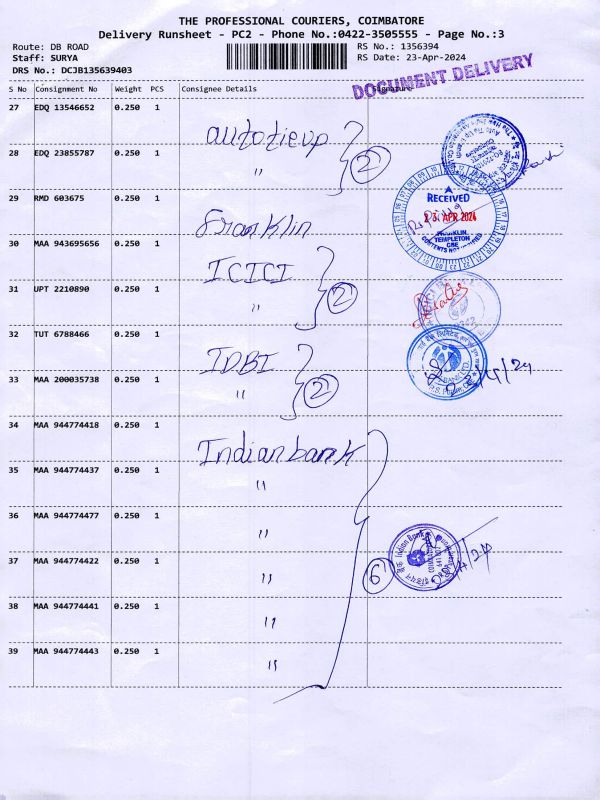 THE PROFESSIONAL COURIERS, COIMBATORE
Delivery Runsheet - PC2 - Phone No.:0422-3505555 - Page No.:3
Route: DB ROAD
Staff: SURYA
DRS No.: DCJB135639403
RS No.: 1356394
RS Date: 23-Apr-2024
DOCUMENT DELIVERY
S No Consignment No Weight PCS Consignee Details Signature
27 EDQ 13546652 0.250 1 autotieup
28 EDQ 23855787 0.250 1 "
2
29 RMD 603675 0.250 1 Franklin
RECEIVED
23 APR 2024
FRANKLIN
TEMPLETON
CBE
CONTENTS NOT VERIFIED
30 MAA 943695656 0.250 1 ICICI
31 UPT 2210890 0.250 1 "
2
32 TUT 6788466 0.250 1 IDBI
33 MAA 200035738 0.250 1 "
2
34 MAA 944774418 0.250 1 Indianbank
35 MAA 944774437 0.250 1 "
36 MAA 944774477 0.250 1 "
Indian Bank
37 MAA 944774422 0.250 1 "
6
38 MAA 944774441 0.250 1 "
39 MAA 944774443 0.250 1 "